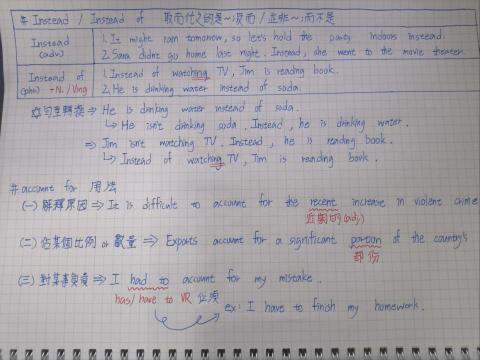 # Instead / Instead of 取而代之的是~;反而 / 並非~;而不是
Instead (adv)
1. It might rain tomorrow, so let's hold the party indoors instead.
2. Sara didn't go home last night. Instead, she went to the movie theater.
Instead of (phr) +N. / Ving
1. Instead of watching TV, Jim is reading book.
2. He is drinking water instead of soda.
⇒ He is drinking water instead of soda.
↳ He isn't drinking soda. Instead, he is drinking water.
⇒ Jim isn't watching TV. Instead, he is reading book.
↳ Instead of watching TV, Jim is reading book.
# account for 用法
(一) 解釋原因 ⇒ It is difficult to account for the recent increase in violent crime
近期的 (adj)
(二) 佔某個比例 or 數量 ⇒ Exports account for a significant portion of the country's
部份
(三) 對某事負責 ⇒ I had to account for my mistake.
has/have to VR 必須
ex: I have to finish my homework.